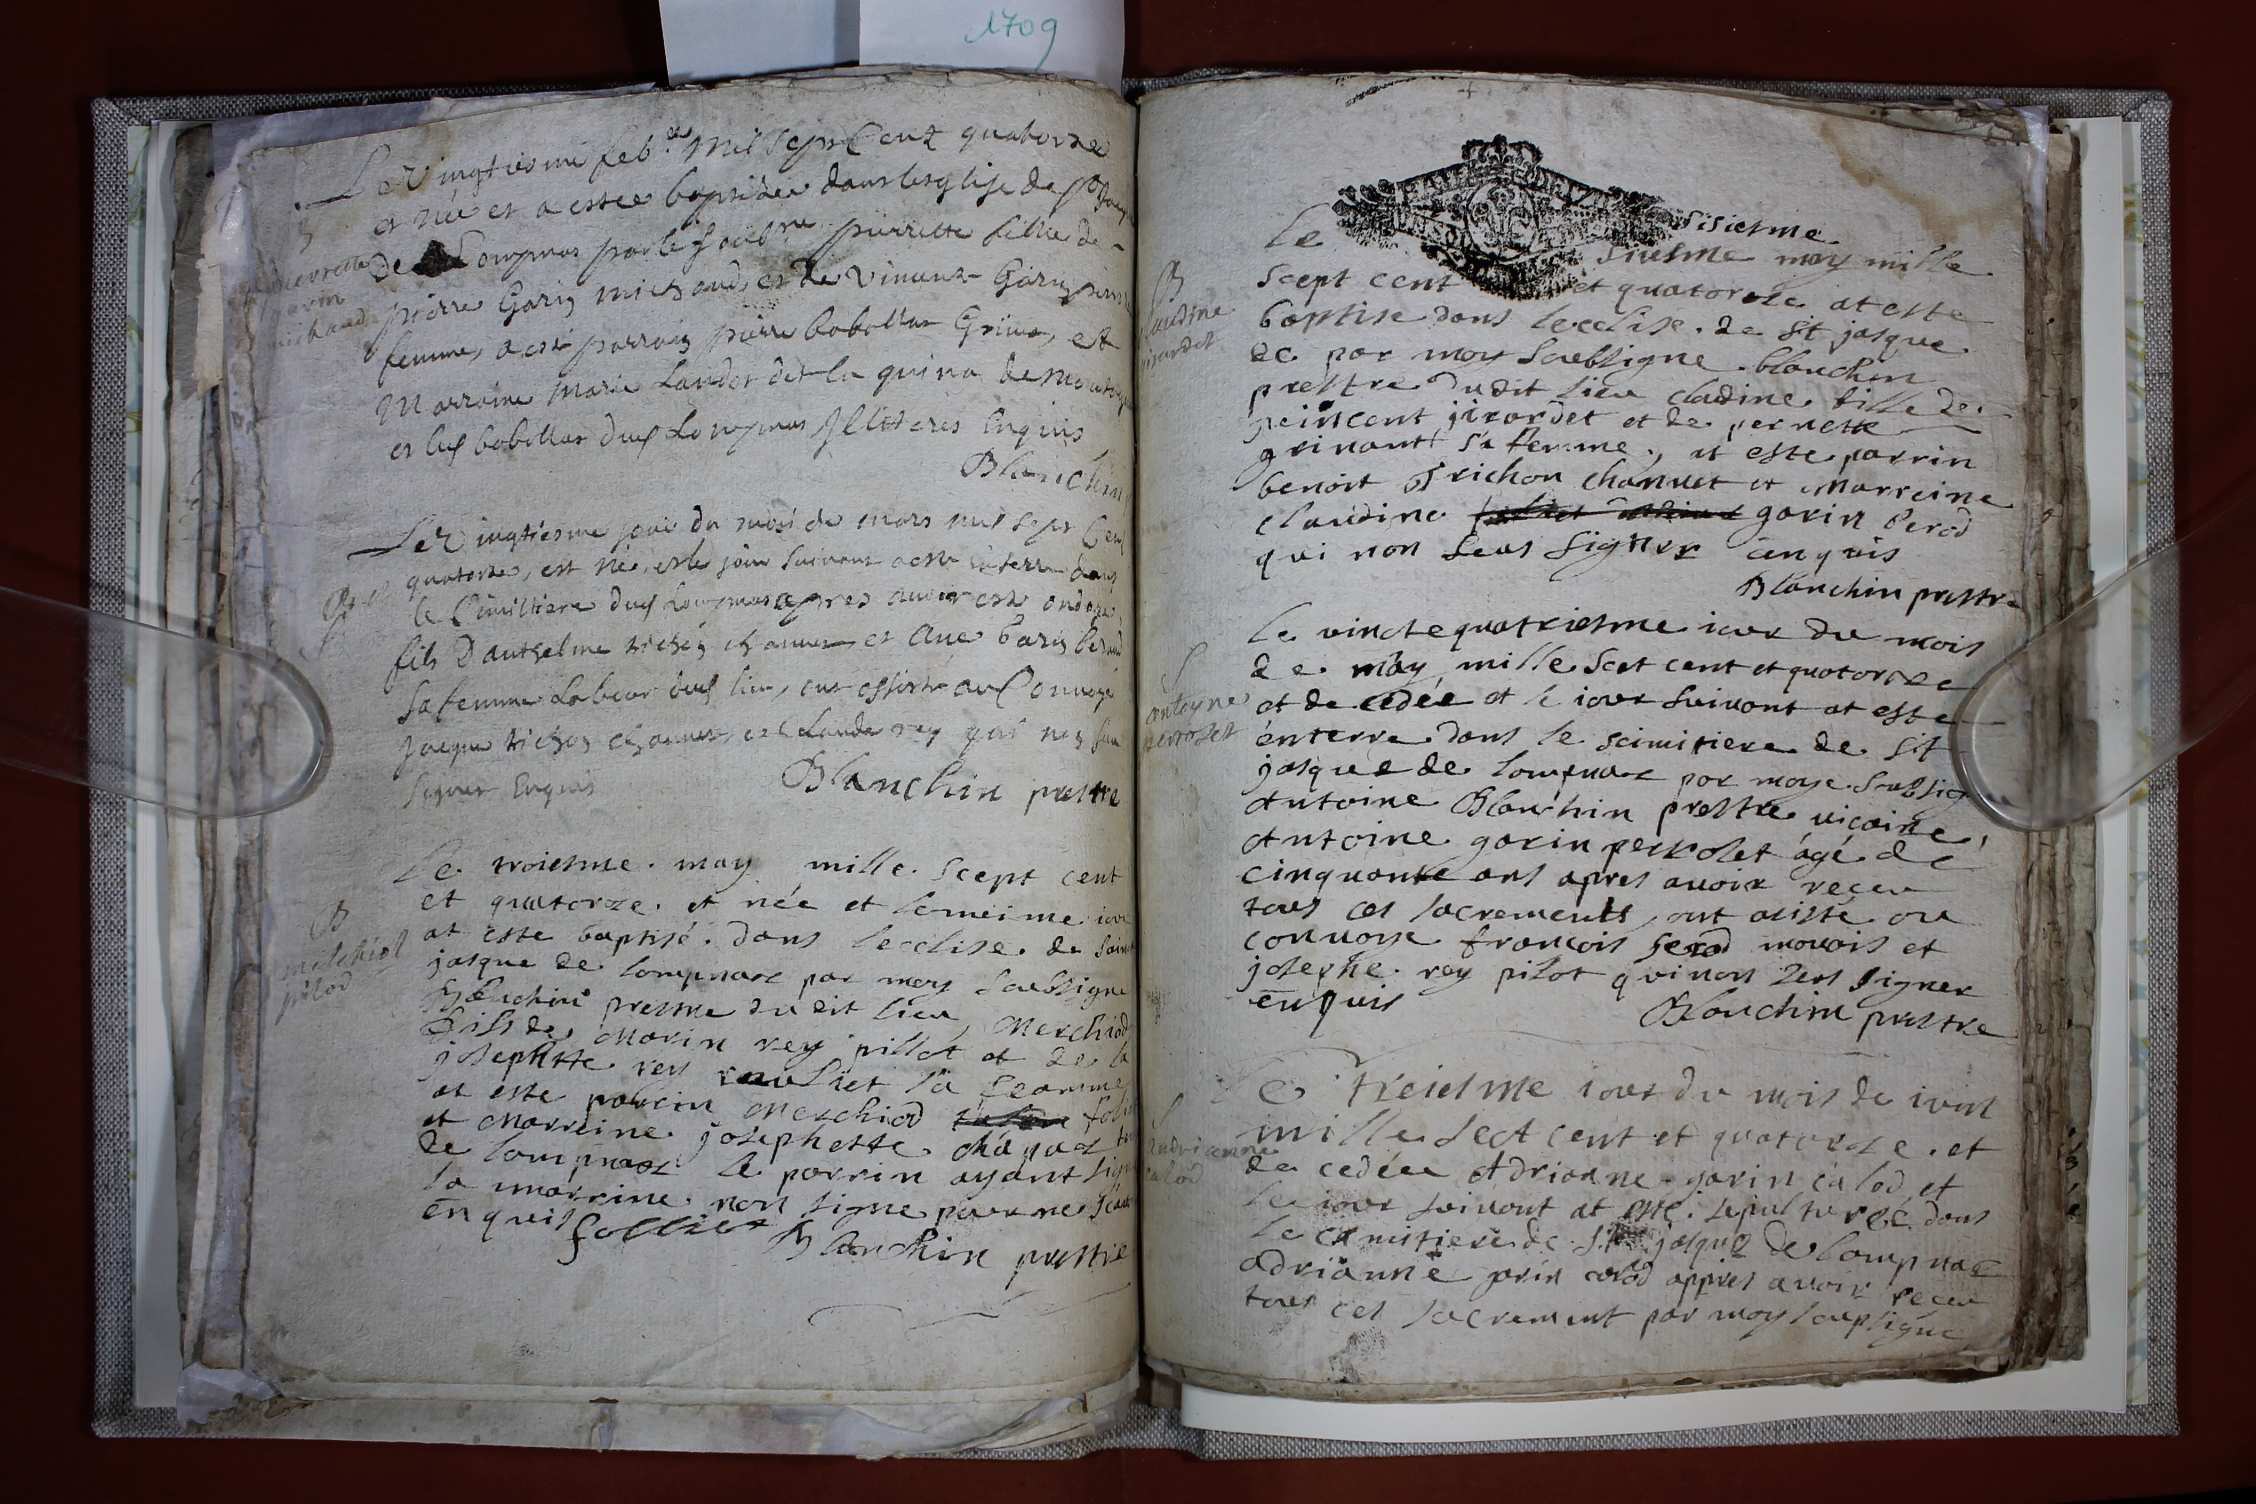 1709
Le vingtiesme feb.re mil sept Cent quatorze
et née et a estee baptisée dans lesglise de
de Lompnas par le pierrette fille de
pierre Garin michaud, et de vincent Garin
femme, a esté parrain pierre babollat et
Marraine marie de
et babollat dud Lompnas Illiteres Enquis
Blanchin
pierrette
garin
michaud
Le vingtiesme jour du mois de mars mil sept Cent
quatorze, est né, et le jour suivant a esté enterré dans
le Cimittiere dud Lompnas apres avoir esté ondoye
fils Danthelme trichon chanuet et Garin
sa femme Labeur dud lieu, ont assisté au Convoye
Jacque trichon chanuet, et Claude rey qui
signer Enquis
Blanchin prestre
Le troiesme may mille scept cent
et quatorze et née et le meime iour
at este baptisé dans lecclise de saint
jasque de lompnas par moy soubsigne
blanchin prestre du dit lieu, Merchiod
fils de Marin rey pillot et de la
josephtte rey sa feamme
at este parrin Merchiod
et Marreine josephette
de lompnas le parrin ayant signe
la marrine non signe pour ne
enquis follier
Blanchin prestre
B
melchiol
pilod
Le sisiesme
siiesme may mille
scept cent et quatorze at este
baptise dans lecclise de st jasque
ec par moy soubsigne blanchin
prestre dudit lieu cladine fille de
jirardet et de pernette
grinant sa femme, at este parrin
benoit trichon chanuet et Marreine
claudine garin berod
qui non seus signer enquis
Blanchin prestre
B
claudine
girardet
Le vincte quatriesme iour du mois
de may mille scet cent et quatorze
et de cedee et le iour suivant at este
enterre dans le scimitiere de sit
jasque de lompnas par moye soubsig
Antoine Blanchin prestre vicaire,
Antoine garin perrolet âgé de
cinquante ans apres avoir reçeu
tous ces sacrements, ont asisté au
convoye francois serod mouois et
josephe rey pilot qui non seus signer
enquis
Blanchin prestre
S
antoyne
perrolet
Le treiesme iour du mois de iuin
mille sect cent et quatorze et
de cedéee Adrianne garin calod et
le iour suivant at esté sepulturee dans
le cimitiere de st jasque de lompnas
adrianne garin calod appres avoir reçeu
tous ces sacrement par moy soupsigne
S
andrienne
calod